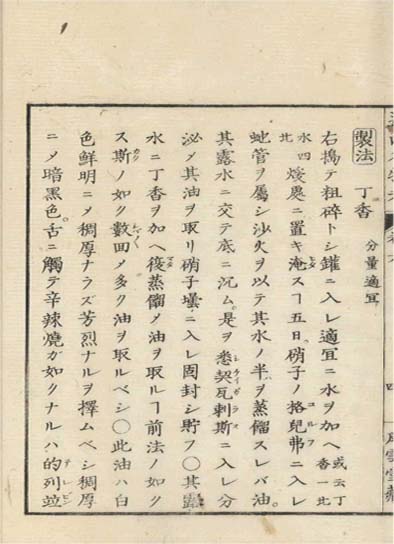 製法 丁香 分量適宜
右搗テ粗砕トシ罐ニ入レ適宜ニ水ヲ加ヘ 或云丁香一比
水四比 煖處ニ置キ淹スヿ五日。硝子ノ格兒弗ニ入レ コルフ
虵管ヲ屬シ沙火ヲ以テ其水ノ半ヲ蒸餾スレバ油。
其露水ニ交テ底ニ沉ム。是ヲ悉契瓦刺斯ニ入レ分 シケイガラス
泌メ其油ヲ取リ硝子壜ニ入レ固封シ貯フ〇其露
水ニ丁香ヲ加ヘ復蒸餾メ油ヲ取ルヿ前法ノ如ク マタ
ス斯ノ如ク數回メ多ク油ヲ取ルベシ〇此油ハ白 カク
色鮮明ニメ稠厚ナラズ芳烈ナルヲ擇ムベシ稠厚
ニメ暗黒色。舌ニ觸テ辛辣燒ガ如クナルハ的列並 テレビン